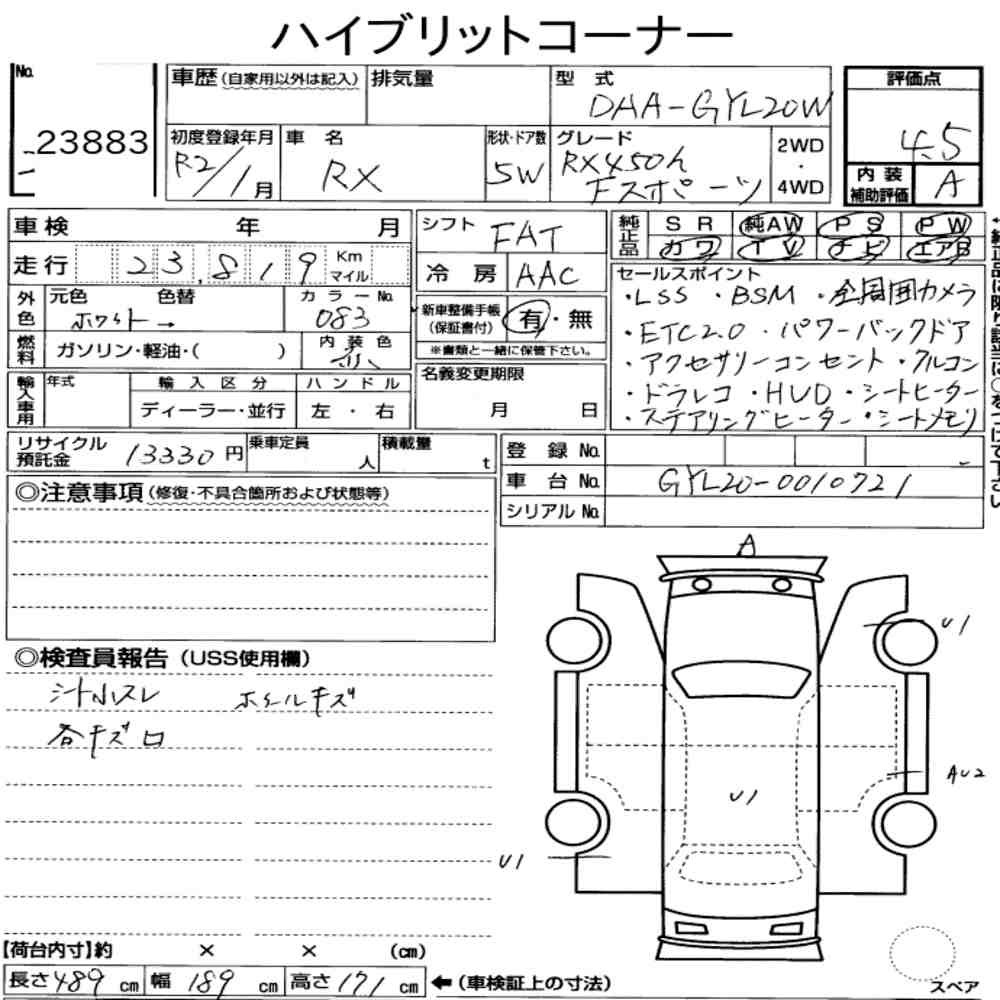 ハイブリットコーナー
No.
23883
車歴(自家用以外は記入)
排気量
型 式
DAA-GYL20W
評価点
4.5
初度登録年月
R2/1月
車 名
RX
形状・ドア数
5W
グレード
RX450h
Fスポーツ
2WD
・
4WD
内 装
補助評価
A
車検 年 月
走行 23,819 Km マイル
シフト FAT
冷 房 AAC
純正品
SR 純AW PS PW
カワ TV ナビ エアB
外色
元色 色替
ホワイト→
カラーNo.
083
燃料
ガソリン・軽油・( )
内 装 色
新車整備手帳
(保証書付)
有・無
※書類と一緒に保管下さい。
セールスポイント
・LSS ・BSM ・全周囲カメラ
・ETC2.0 ・パワーバックドア
・アクセサリーコンセント・クルコン
・ドラレコ・HUD・シートヒーター
・ステアリングヒーター・シートメモリ
輸入車用
年式
輸 入 区 分
ディーラー・並行
ハ ン ド ル
左 ・ 右
名義変更期限
月 日
リサイクル
預託金
13330円
乗車定員
人
積載量
t
登 録 No.
車 台 No. GYL20-0010721
シリアル No.
◎注意事項(修復・不具合箇所および状態等)
◎検査員報告(USS使用欄)
シート小スレ ホイールキズ
各キズ
A
U1
AU2
U1
U1
【荷台内寸】約 × × (cm)
長さ489cm 幅 189 cm 高さ171 cm ←(車検証上の寸法)
スペア